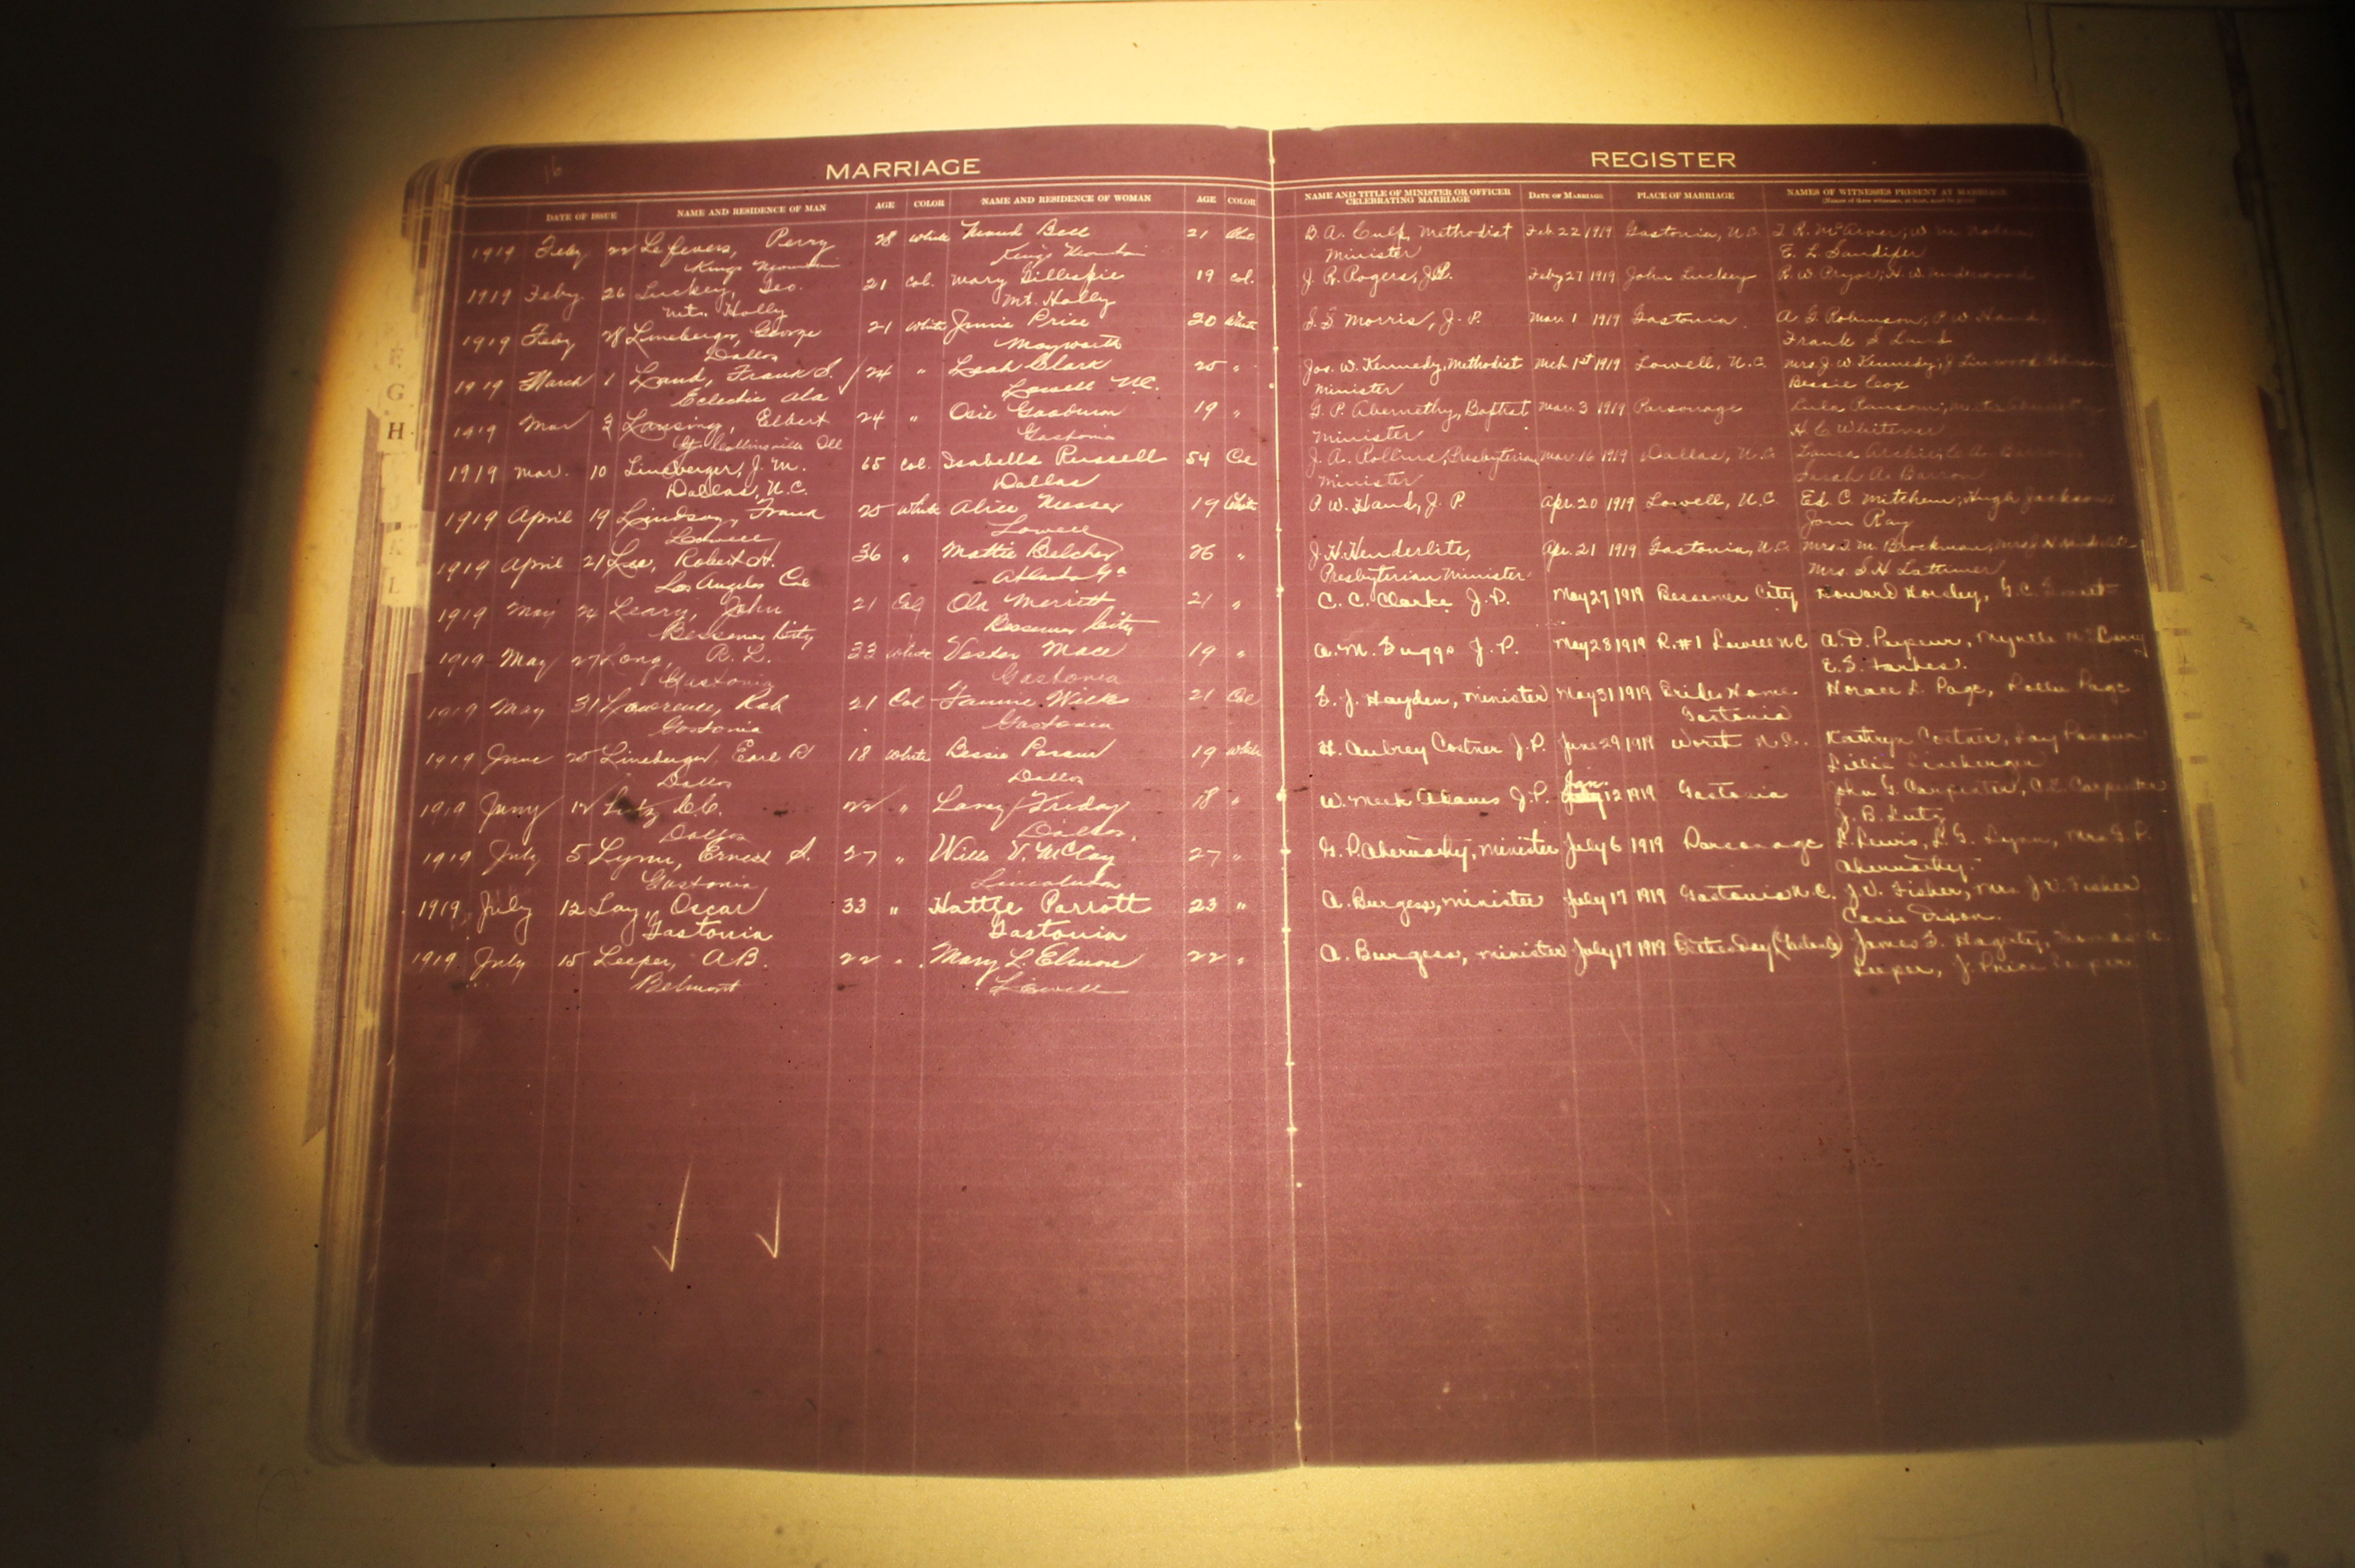 16
MARRIAGE
REGISTER
DATE OF ISSUE NAME AND RESIDENCE OF MAN AGE COLOR NAME AND RESIDENCE OF WOMAN AGE COLOR NAME AND TITLE OF MINISTER OR OFFICER CELEBRATING MARRIAGE DATE OF MARRIAGE PLACE OF MARRIAGE NAMES OF WITNESSES PRESENT AT MARRIAGE
1919 Feby 22 Lefevers, Perry 28 White Maud Bell 21 B. A. Culp, Methodist Feb 22 1919 Gastonia, N.C.
Kings Mountain Kings Mountain Minister E. L. Sandifer
1919 Feby. 26 Luckey, Geo. 21 Col. Mary Gillespie 19 Col. J. R. Rogers, J.P. Feby 27 1919 John Luckey R. W. Pryor; H. W. Underwood
Mt. Holly Mt. Holly
1919 Feby 28 Lineberger, George 21 White Jinnie Price 20 White S. S. Morris, J. P. Mar. 1 1919 Gastonia. A. G. Robinson, P. W. Hand,
Dallas Mayworth Frank S. Land
1919 March 1 Land, Frank S. 24 " Leah Clark 20 " Jos. W. Kennedy, Methodist Mch. 1st 1919 Lowell, N.C. Mrs. J. W. Kennedy; J. Linwood Robinson
Eclectic Ala Lowell N.C. Minister Bessie Cox
1919 Mar 3 Lansing, Elbert 24 " Osie Goodwin 19 " G. P. Abernethy, Baptist Mar. 3 1919 Parsonage Lula Ransom;
Collinsville Ill Gastonia Minister H. C. Whitener
1919 Mar. 10 Lineberger, J. M. 65 Col. Isabella Russell 54 Col J. A. Rollins, Presbyterian Mar. 16 1919 Dallas, N.C. Laura
Dallas, N.C. Dallas Minister Sarah A. Barron
1919 April 19 Lindsay, Frank 25 White Alice Messer 19 White P. W. Hand, J. P. Apr. 20 1919 Lowell, N.C. Ed. C. Mitchem; Hugh Jackson;
Lowell Lowell Jom Ray
1919 April 21 Lee, Robert H. 36 " Mattie Belcher 26 " J. H. Henderlite, Apr. 21 1919 Gastonia, N.C. Mrs. T. M. Brockman, Mrs. J. H. Henderlite
Los Angeles Cal Atlanta Ga Presbyterian Minister Mrs. S. H. Lattimer
1919 May 24 Leary, John 21 Col Ola Merritt 21 " C. C. Clarke J. P. May 27 1919 Bessemer City Howard Horsley, G. C.
Bessemer City Bessemer City
1919 May 27 Long, R. L. 33 White Vester Mace 19 " A. M. Suggs J. P. May 28 1919 R. #1 Lowell NC A. D. Myrtle McCarry
Gastonia Gastonia E. S. Forbes.
1919 May 31 Lawrence, Rob 21 Col Fannie Wilks 21 Col S. J. Hayden, Minister May 31 1919 Brides Home Horace L. Page, Rollie Page
Gastonia Gastonia Gastonia
1919 June 25 Lineberger, Earl R 18 White Bessie Pasour 19 White H. Aubrey Costner J. P. June 29 1919 Worth N.C. Kathryn Costner, Fay Pasour
Dallas Dallas Lillie Lineberger
1919 12 Lutz, D.C. 22 " Friday 18 " W. Meek Adams J. P. Jan. 12 1919 Gastonia John G. Carpenter, C. E. Carpenter
Dallas Dallas. J. B. Lutz
1919 July 5 Lynn, Ernest S. 27 " Willo V. McCoy 27 " G. P. Abernathy, Minister July 6 1919 Parsonage L. Lewis, L. G. Lynn, Mrs. G. P.
Gastonia Lincolnton Abernathy.
1919 July 12 Lay, Oscar 33 " Hattie Parrott 23 " A. Burgess, Minister July 17 1919 Gastonia N.C. J. V. Fisher, Mrs. J. V. Fisher
Gastonia Gastonia Carie Dixon.
1919 July 15 Leeper, A.B. 22 " Mary L. Elmore 22 " A. Burgess, Minister July 17 1919 James S. Hagerty, Thomas W.
Belmont Lowell Leeper, J. Price Leeper.
E
G
H
J
K
L